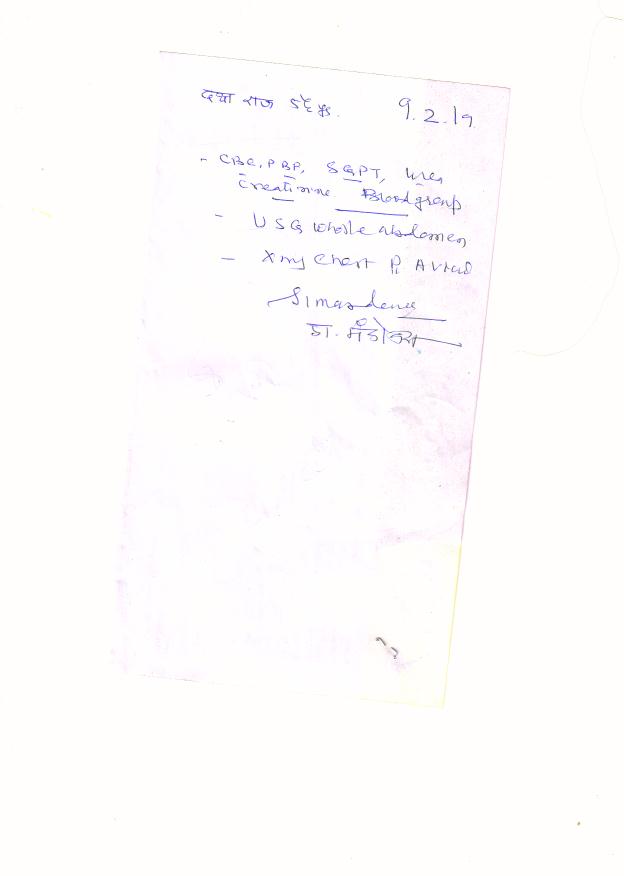 दया राज 9.2.19
- CBC, PBP, SGPT, Urea
Creatinine Blood group
- USG whole abdomen
- Xray Chest PA
डा.